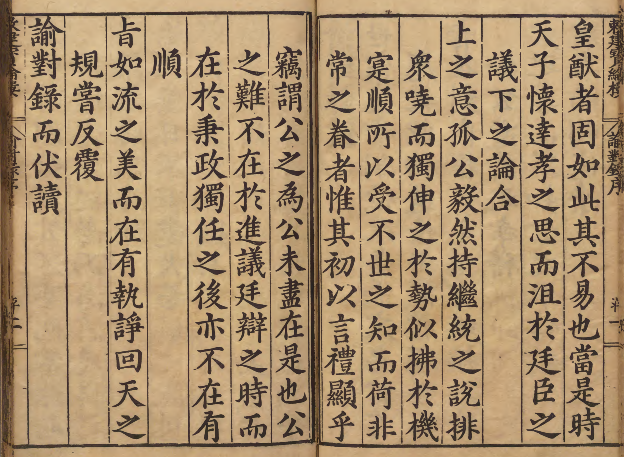 皇猷者固如此其不易也當是時
天子懷達孝之思而沮於廷臣之
議下之論合
上之意孤公毅然持繼統之說排
衆哓而獨伸之於勢似拂於機
寔順所以受不世之知而荷非
常之眷者惟其初以言禮顯乎
竊謂公之為公未盡在是也公
之難不在於進議廷辯之時而
在於秉政獨任之後亦不在有
順
旨如流之美而在有執諍回天之
規嘗反覆
諭對錄而伏讀